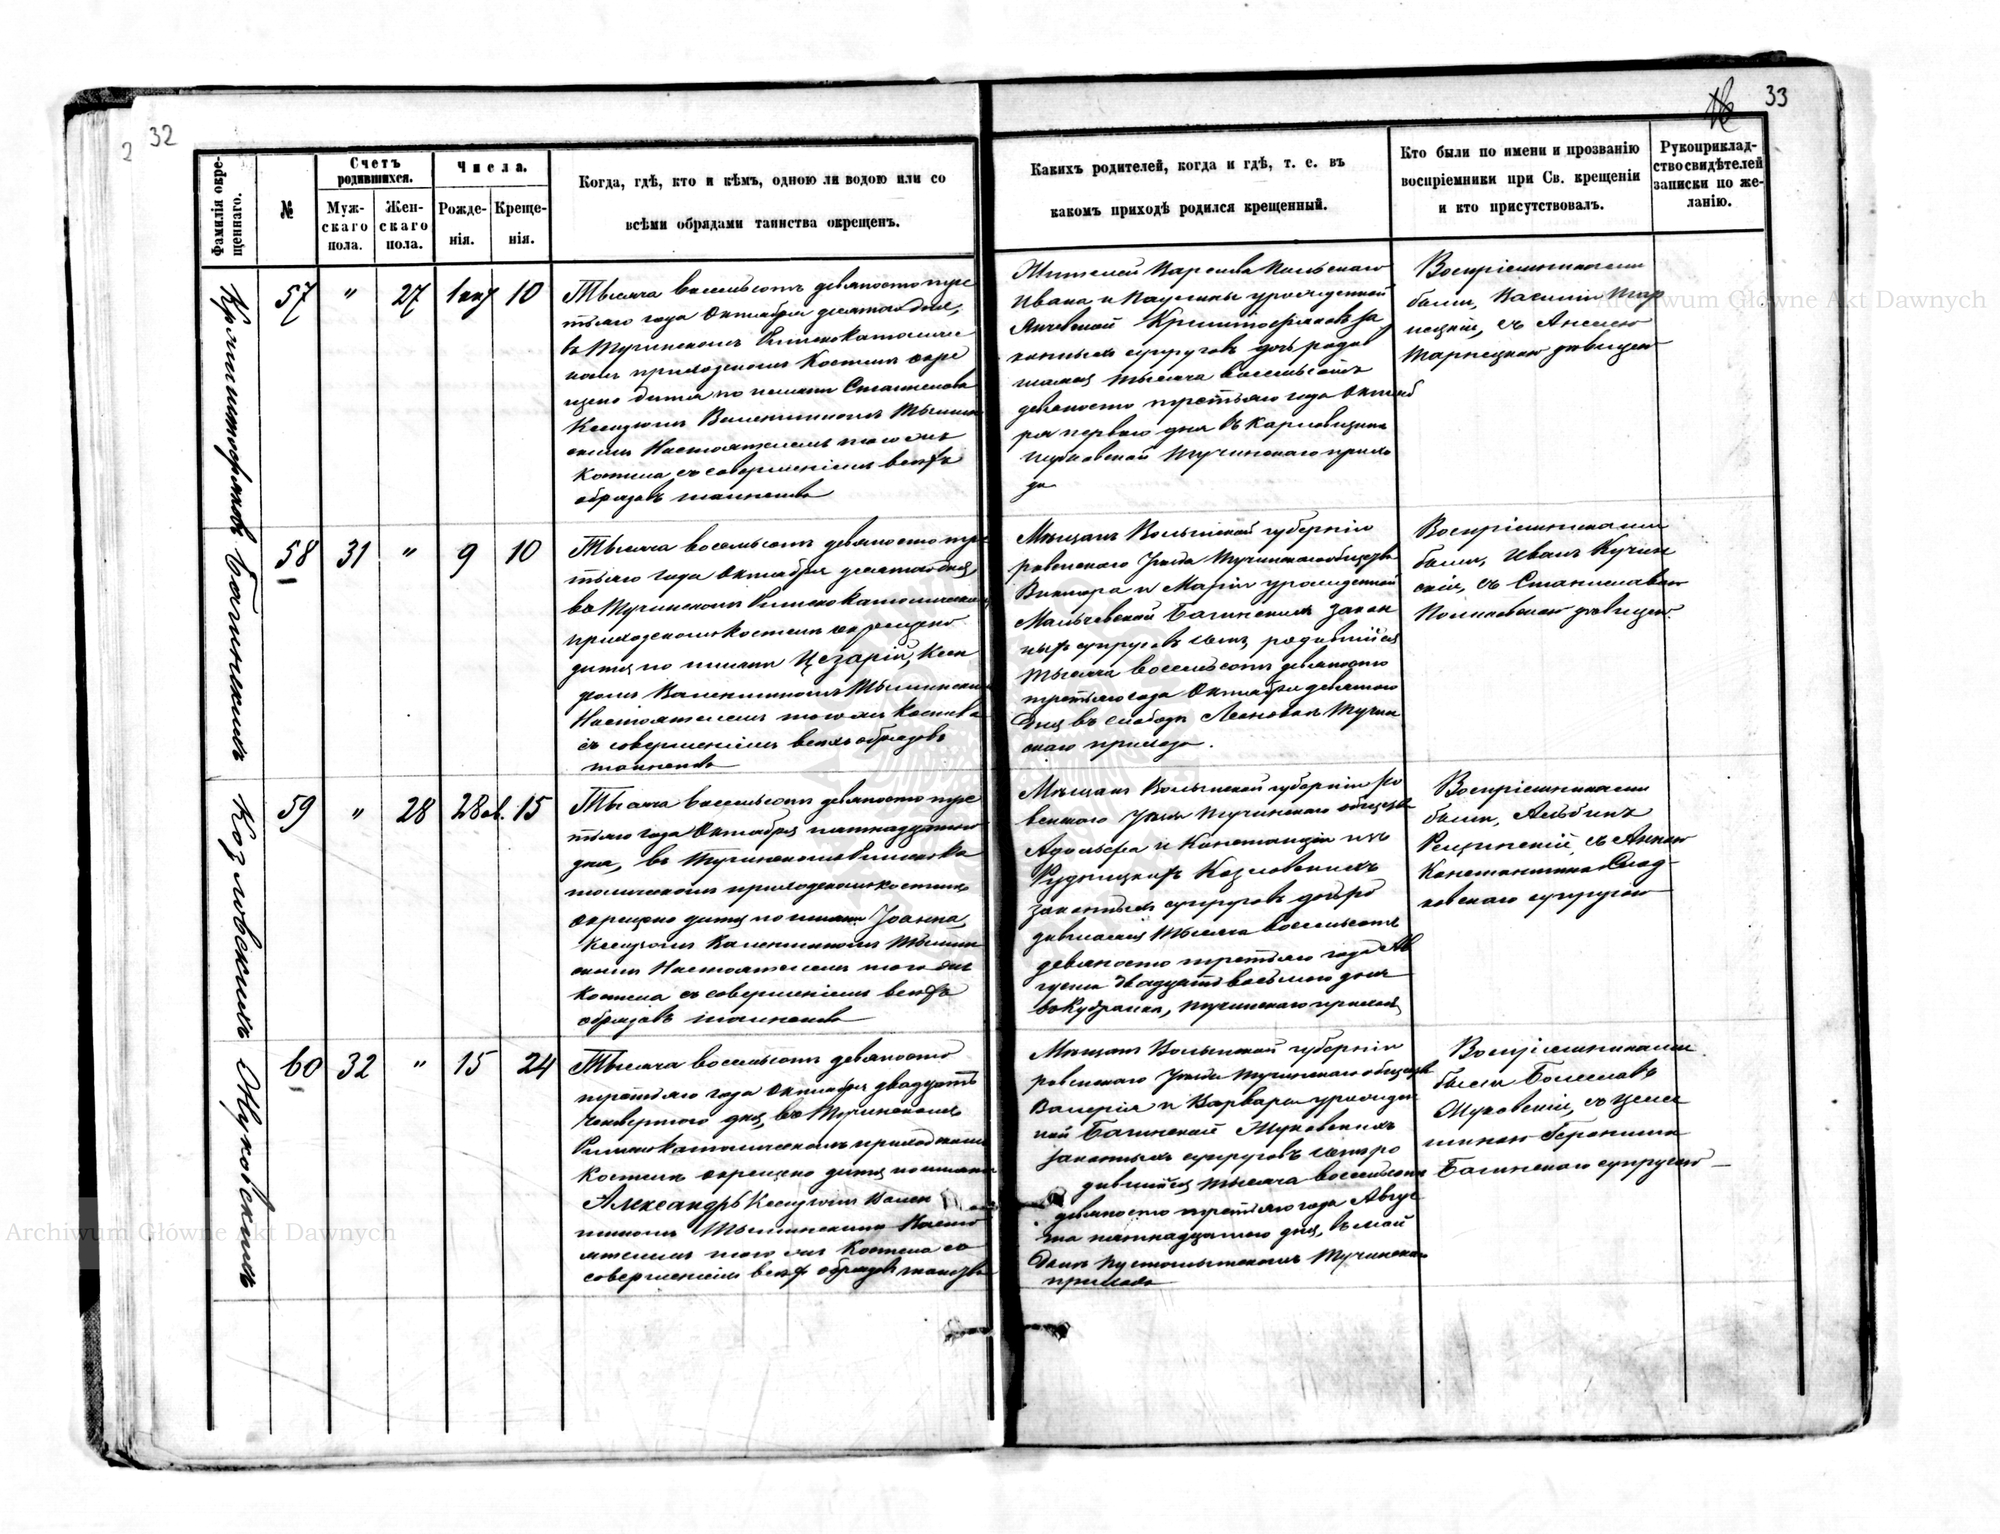 32
2
33
Фамилія окре-
щеннаго.
№
Счетъ
родившихся.
Муж-
скаго
пола.
Жен-
скаго
пола.
Числа.
Рожде-
нія.
Креще-
нія.
Когда, гдѣ, кто и кѣмъ, одною ли водою или со
всѣми обрядами таинства окрещенъ.
Какихъ родителей, когда и гдѣ, т. е. въ
какомъ приходѣ родился крещенный.
Кто были по имени и прозванію
воспріемники при Св. крещеніи
и кто присутствовалъ.
Рукоприклад-
ство свидѣтелей
записки по же-
ланію.
57
"
27
10
Тысяча восемьсотъ девяносто тре
тьяго года Октября десятого дня,
въ Тучинскомъ Римско Католичес
комъ приходскомъ Костелѣ окре
щено дитя по имени Станислава
Ксендзомъ Валентиномъ Тышин
скимъ Настоятелемъ того же
Костела съ совершеніемъ всѣхъ
обрядовъ таинства
Жителей Царства Польскаго
Ивана и Паулины урожденной
законныхъ супруговъ дочь роди
шаяся тысяча восемьсотъ
девяносто третьяго года Октяб
ря перваго дня въ
Тучинскаго прихо
да
Воспріемниками
были,
дѣвицею
Багинскихъ
58
31
"
9
10
Тысяча восемьсотъ девяносто тре
тьяго года Октября десятого дня,
въ Тучинскомъ Римско Католическомъ
приходскомъ Костелѣ окрещено
дитя по имени Цезарій, Ксен
дзомъ Валентиномъ Тышинскимъ
Настоятелемъ того же Костела
съ совершеніемъ всѣхъ обрядовъ
таинства
Мѣщанъ Волынской губерніи
ровенскаго уѣзда Тучинскаго общества
Виктора и Маріи урожденной
Багинскихъ закон
ныхъ супруговъ сынъ, родившійся
тысяча восемьсотъ девяносто
третьяго года Октября девятого
дня въ слободѣ Леоновкѣ Тучин
скаго прихода.
Воспріемниками
были, Иванъ Кучин
скій, съ Станиславою
дѣвицею.
Козловскихъ
59
"
28
28 ав.
15
Тысяча восемьсотъ девяносто тре
тьяго года Октября пятнадцатого
дня, въ Тучинскомъ Римско Ка
толическомъ приходскомъ костелѣ
окрещено дитя по имени Іоанна,
Ксендзомъ Валентиномъ Тышин
скимъ Настоятелемъ того же
Костела съ совершеніемъ всѣхъ
обрядовъ таинства
Мѣщанъ Волынской губерніи Ро
венскаго уѣзда Тучинскаго общества
Адольфа и Констанціи изъ
Рудницкихъ Козловскихъ
законныхъ супруговъ дочь ро
дившаяся тысяча восемьсотъ
девяносто третьяго года Ав
густа двадцать восьмого дня
въ Кудранкѣ, Тучинскаго прихода
Воспріемниками
были, Альбинъ
съ Анною
Константина
супругою
Жуковскихъ
60
32
"
15
24
Тысяча восемьсотъ девяносто
третьяго года Октября двадцать
четвертого дня, въ Тучинскомъ
Римско Католическомъ приходскомъ
Костелѣ окрещено дитя по имени
Александръ Ксендзомъ Вален
тиномъ Тышинскимъ Насто
ятелемъ того же Костела со
совершеніемъ всѣхъ обрядовъ таинства
Мѣщанъ Волынской губерніи
ровенскаго уѣзда Тучинскаго общества
Валерія и Варвары урожден
ной Багинской Жуковскихъ
законныхъ супруговъ сынъ ро
дившійся тысяча восемьсотъ
девяносто третьяго года Авгус
та пятнадцатого дня, въ
Тучинскаго
прихода
Воспріемниками
были Болеславъ
Жуковскій, съ Целес
тиною Геронима
Багинскаго супругою
Archiwum Główne Akt Dawnych
Archiwum Główne Akt Dawnych